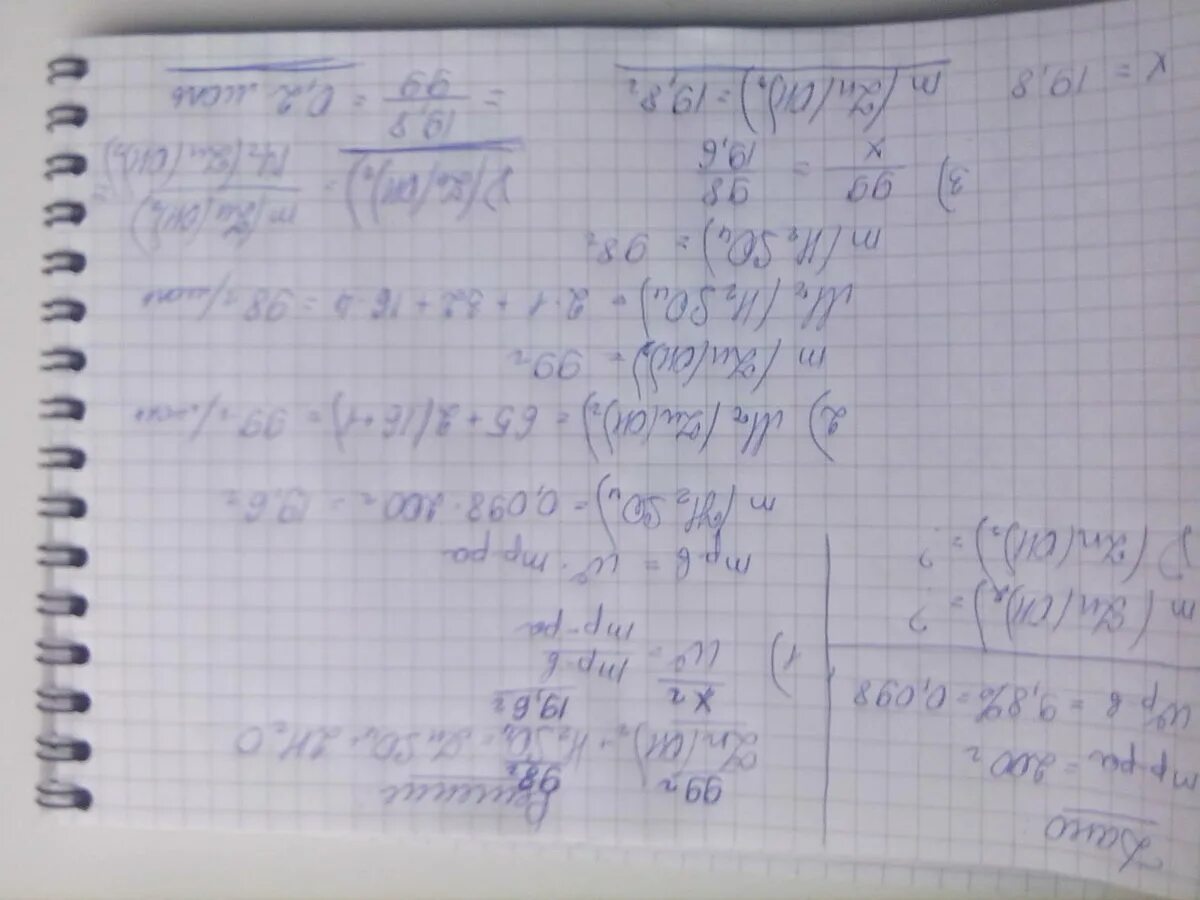 Дано
mр-ра = 200г
Wр.в = 9,8% = 0,098
m(Zn(OH)₂) = ?
ν(Zn(OH)₂) = ?
Решение
99г 98г
Zn(OH)₂ + H₂SO₄ = ZnSO₄ + 2H₂O
xг 19,6г
1) W = mр.в / mр-ра
mр.в = W · mр-ра
m(H₂SO₄) = 0,098 · 200г = 19,6г
2) Mr(Zn(OH)₂) = 65 + 2(16+1) = 99 г/моль
m(Zn(OH)₂) = 99г
Mr(H₂SO₄) = 2·1 + 32 + 16·4 = 98 г/моль
m(H₂SO₄) = 98г
3) 99/x = 98/19,6
x = 19,8
m(Zn(OH)₂) = 19,8г
ν(Zn(OH)₂) = m(Zn(OH)₂) / Mr(Zn(OH)₂) =
= 19,8/99 = 0,2 моль